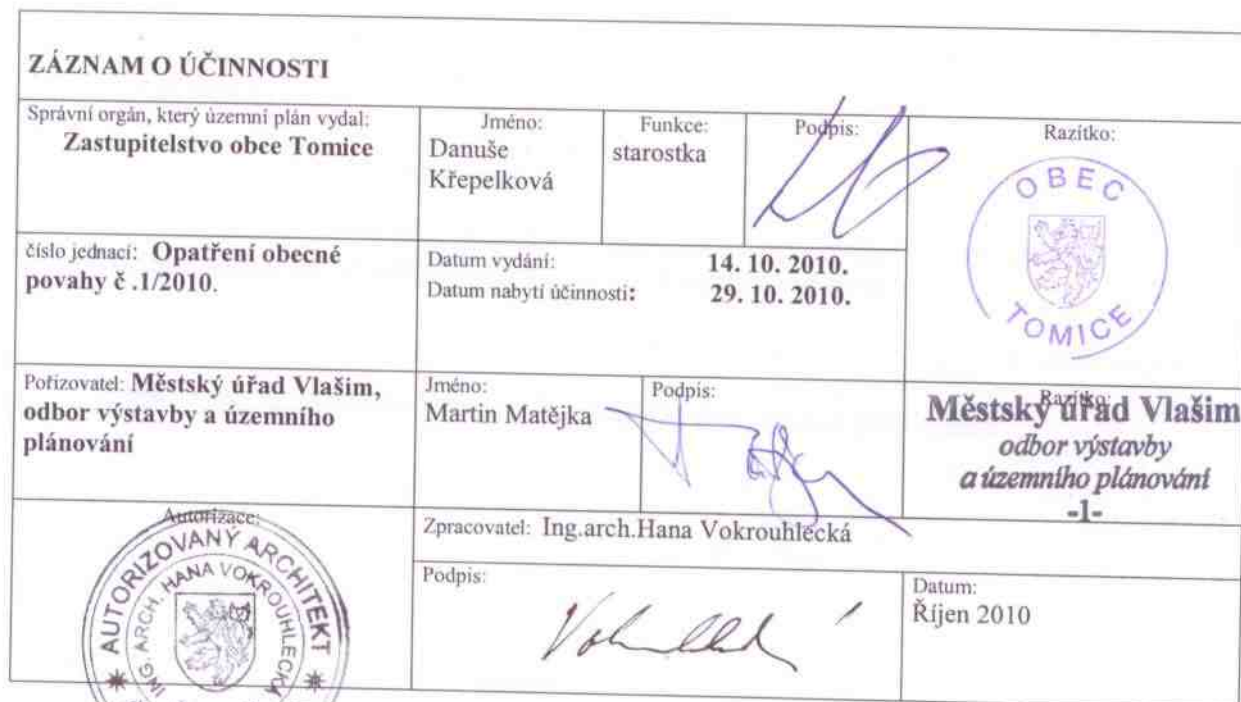 ZÁZNAM O ÚČINNOSTI
Správní orgán, který územní plán vydal:
Zastupitelstvo obce Tomice
Jméno:
Danuše
Křepelková
Funkce:
starostka
Podpis:
Razítko:
OBEC
TOMICE
číslo jednací: Opatření obecné
povahy č .1/2010.
Datum vydání: 14. 10. 2010.
Datum nabytí účinnosti: 29. 10. 2010.
Pořizovatel: Městský úřad Vlašim,
odbor výstavby a územního
plánování
Jméno:
Martin Matějka
Podpis:
Razítko:
Městský úřad Vlašim
odbor výstavby
a územního plánování
-1-
Autorizace:
AUTORIZOVANÝ ARCHITEKT
ING. ARCH. HANA VOKROUHLECKÁ
Zpracovatel: Ing.arch.Hana Vokrouhlecká
Podpis:
Datum:
Říjen 2010